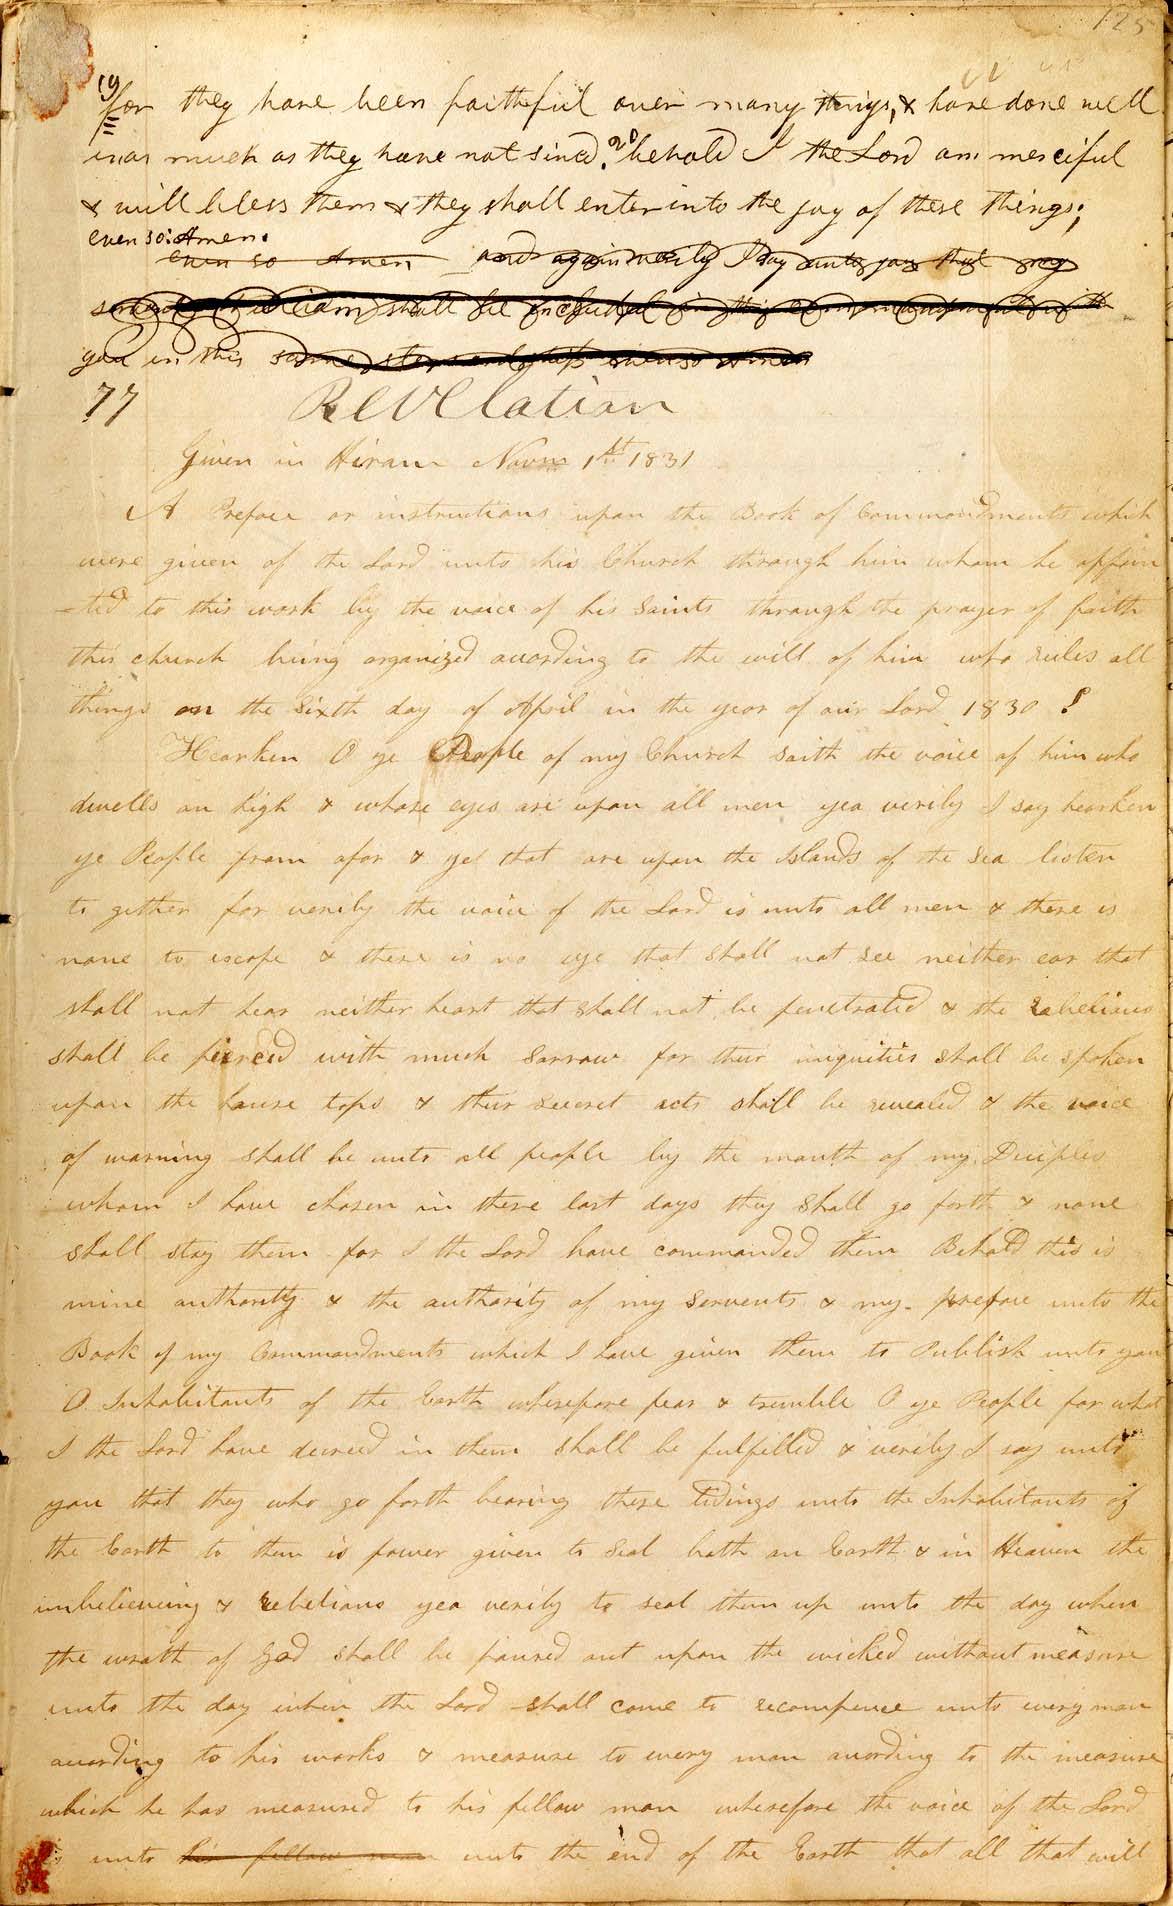 125
19 for they have been faithful over many things, & have done well
inas much as they have not sined. 20 behold I the Lord am merciful
& will bless them & they shall enter into the joy of these things;
even so: Amen.
even so Amen and again verily I say unto you that my
servent William shall be included in this commandment with
you in this same stewardship even so amen
77 Revelation
Given in Hiram Novm 1st 1831
A Preface or instructions upon the Book of Commandments which
were given of the Lord unto his Church through him whom he appoin
-ted to this work by the voice of his Saints through the prayer of faith
this church being organized acording to the will of him who rules all
things on the Sixth day of April in the year of our Lord 1830
Hearken O ye People of my Church saith the voice of him who
dwells on high & whose eyes are upon all men yea verily I say hearken
ye People from afar & ye that are upon the Islands of the Sea listen
to gether for verily the voice of the Lord is unto all men & there is
none to escape & there is no eye that shall not see neither ear that
shall not hear neither heart that shall not be penetrated & the rebelious
shall be pierced with much Sorrow for their iniquities shall be spoken
upon the house tops & their secret acts shall be revealed & the voice
of warning shall be unto all people by the mouth of my Diciples
whom I have chosen in these last days they shall go forth & none
shall stay them for I the Lord have commanded them Behold this is
mine authority & the authority of my Servents & my preface unto the
Book of my Commandments which I have given them to Publish unto you
O Inhabitants of the Earth wherefore fear & tremble O ye People for what
I the Lord have decreed in them shall be fulfilled & verily I say unto
you that they who go forth bearing these tidings unto the Inhabitants of
the Earth to them is power given to Seal both on Earth & in Heaven the
unbelieveing & rebelious yea verily to seal them up unto the day when
the wrath of God shall be poured out upon the wicked without measure
unto the day when the Lord shall come to recompence unto every man
acording to his works & measure to every man acording to the measure
which he has measured to his fellow man wherefore the voice of the Lord
is unto his fellow man unto the end of the Earth that all that will